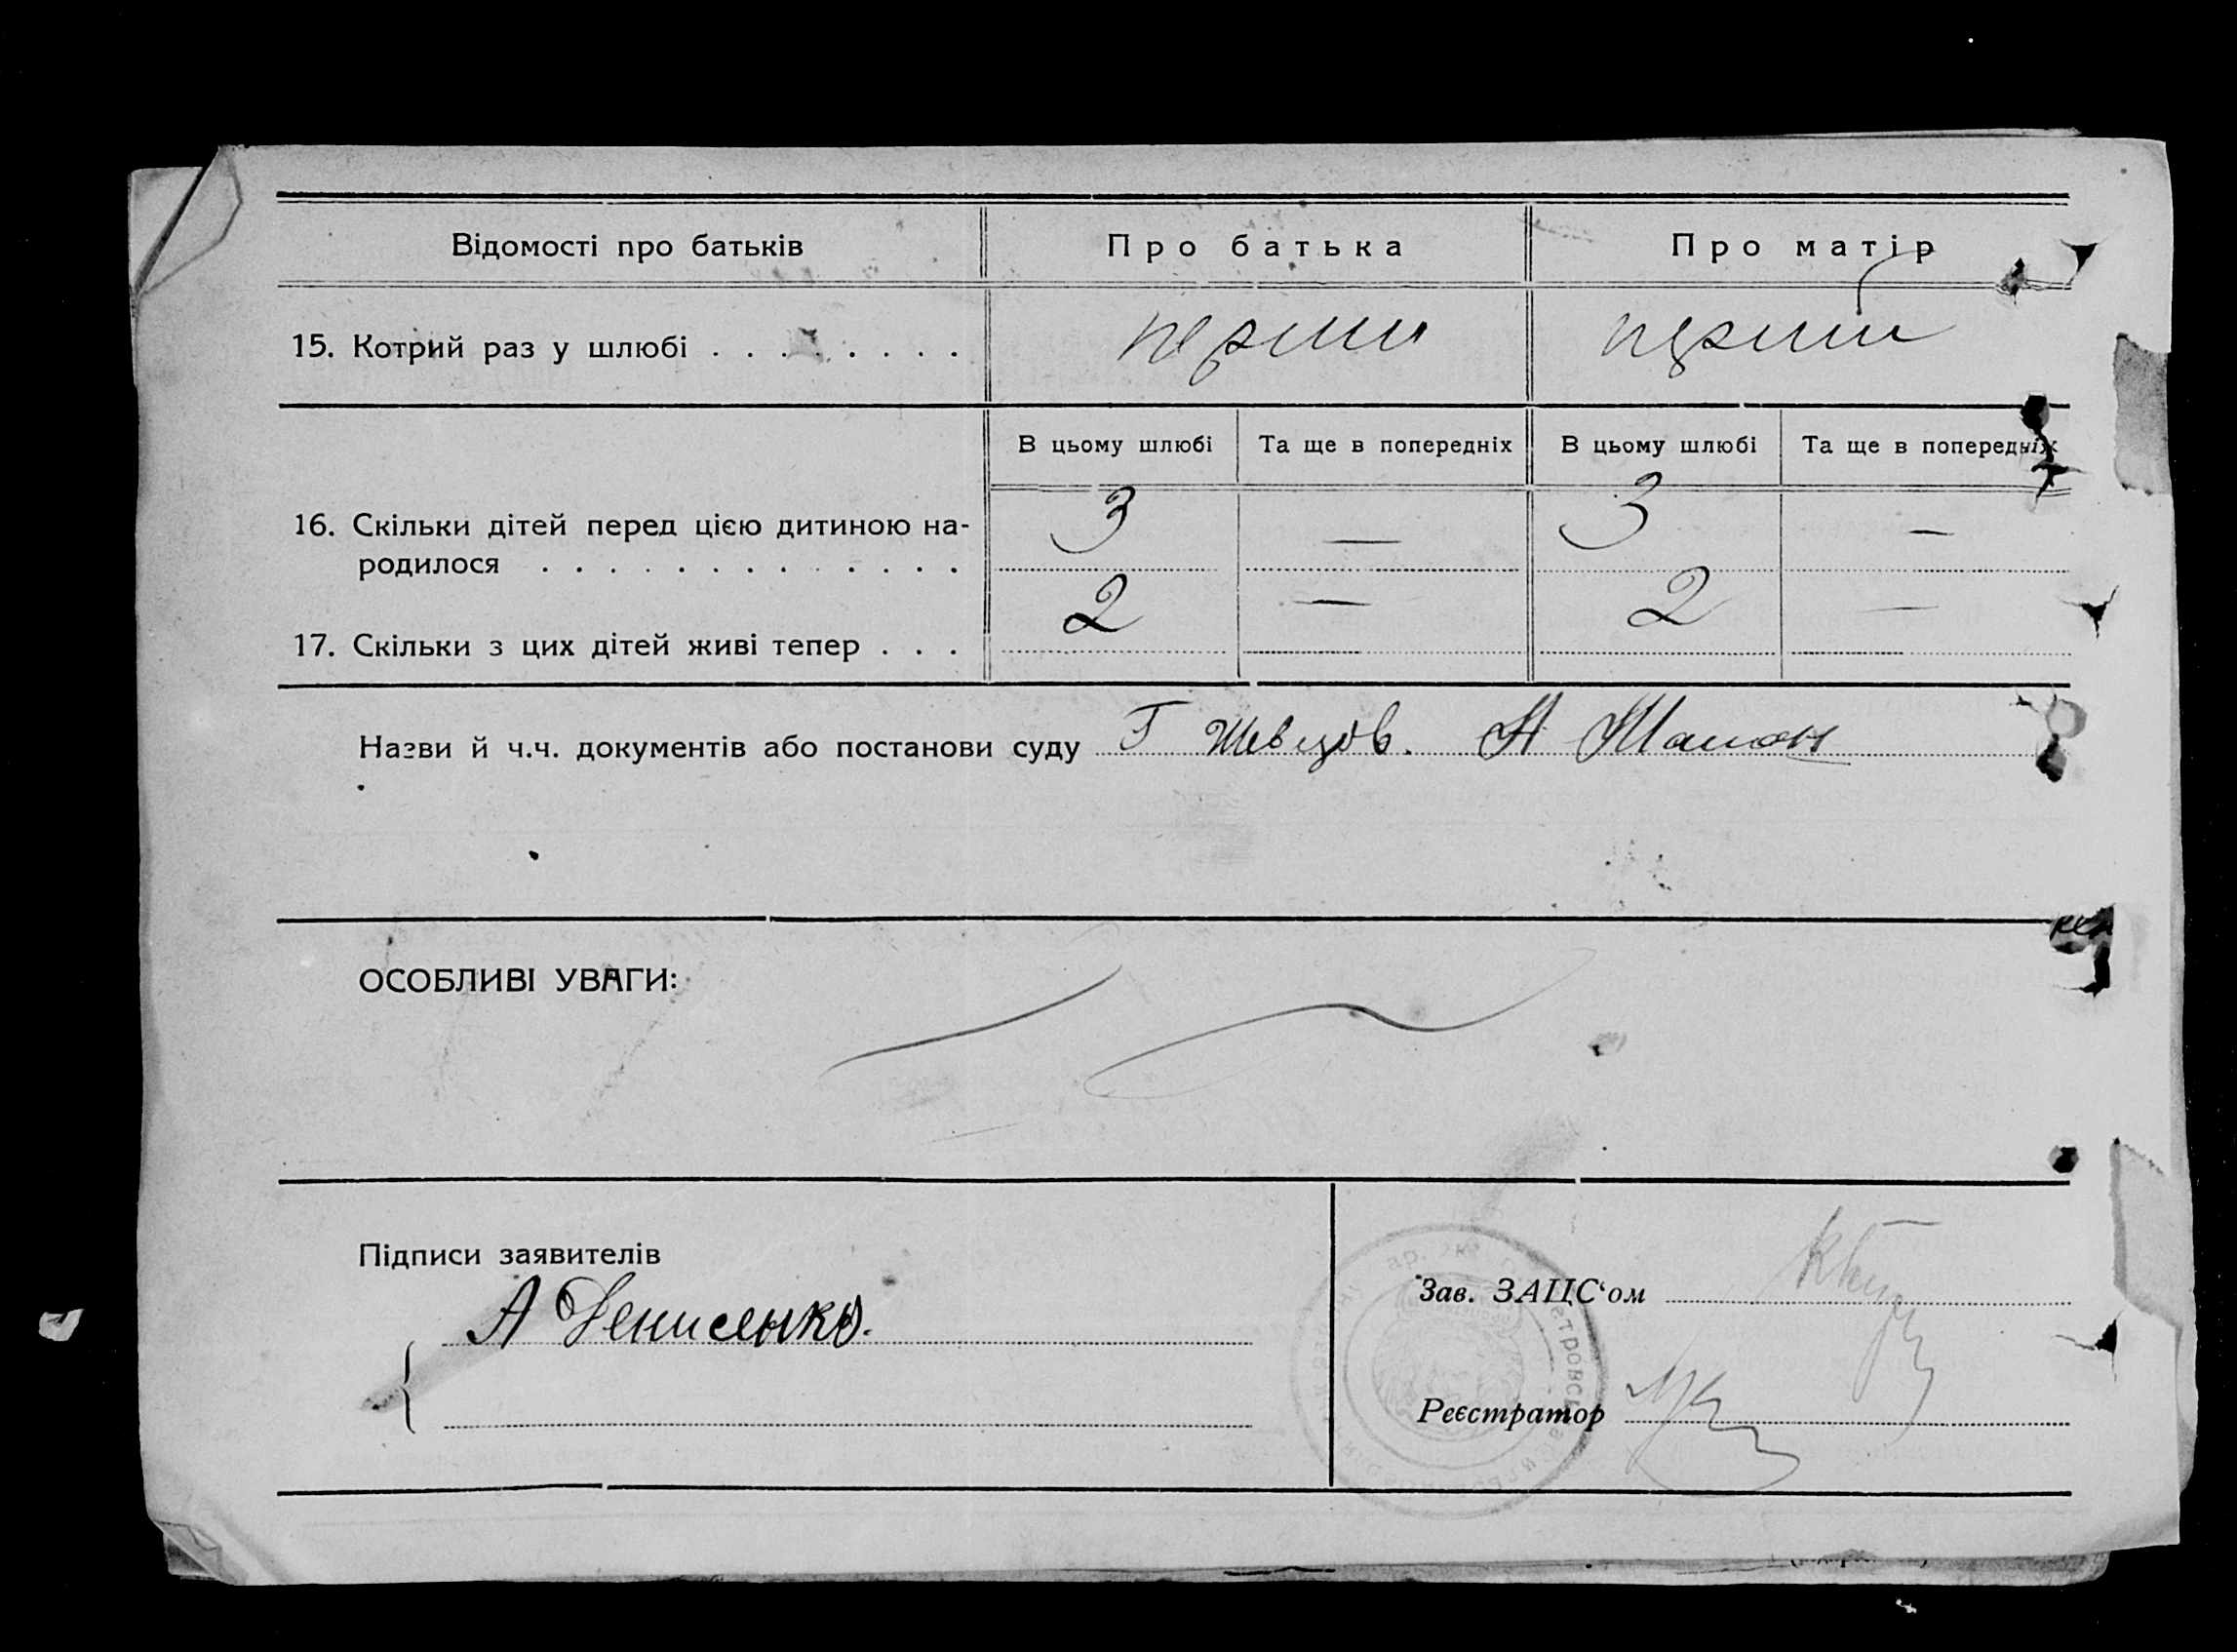 Відомості про батьків
Про батька
Про матір
15. Котрий раз у шлюбі . . . . . . . .
перший
перший
В цьому шлюбі
Та ще в попередніх
В цьому шлюбі
Та ще в попередніх
16. Скільки дітей перед цією дитиною на-
родилося . . . . . . . . . . . . .
3
—
3
—
17. Скільки з цих дітей живі тепер . . .
2
—
2
—
Назви й ч.ч. документів або постанови суду Г Швецов. А
ОСОБЛИВІ УВАГИ:
Підписи заявителів
А Денисенко.
Зав. ЗАЦС‘ом
Реєстратор